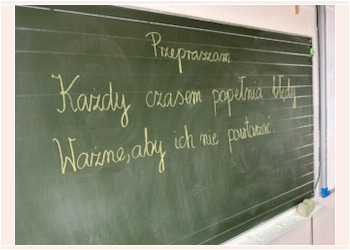 Przepraszam
Każdy czasem popełnia błędy
Ważne, aby ich nie powtarzać.